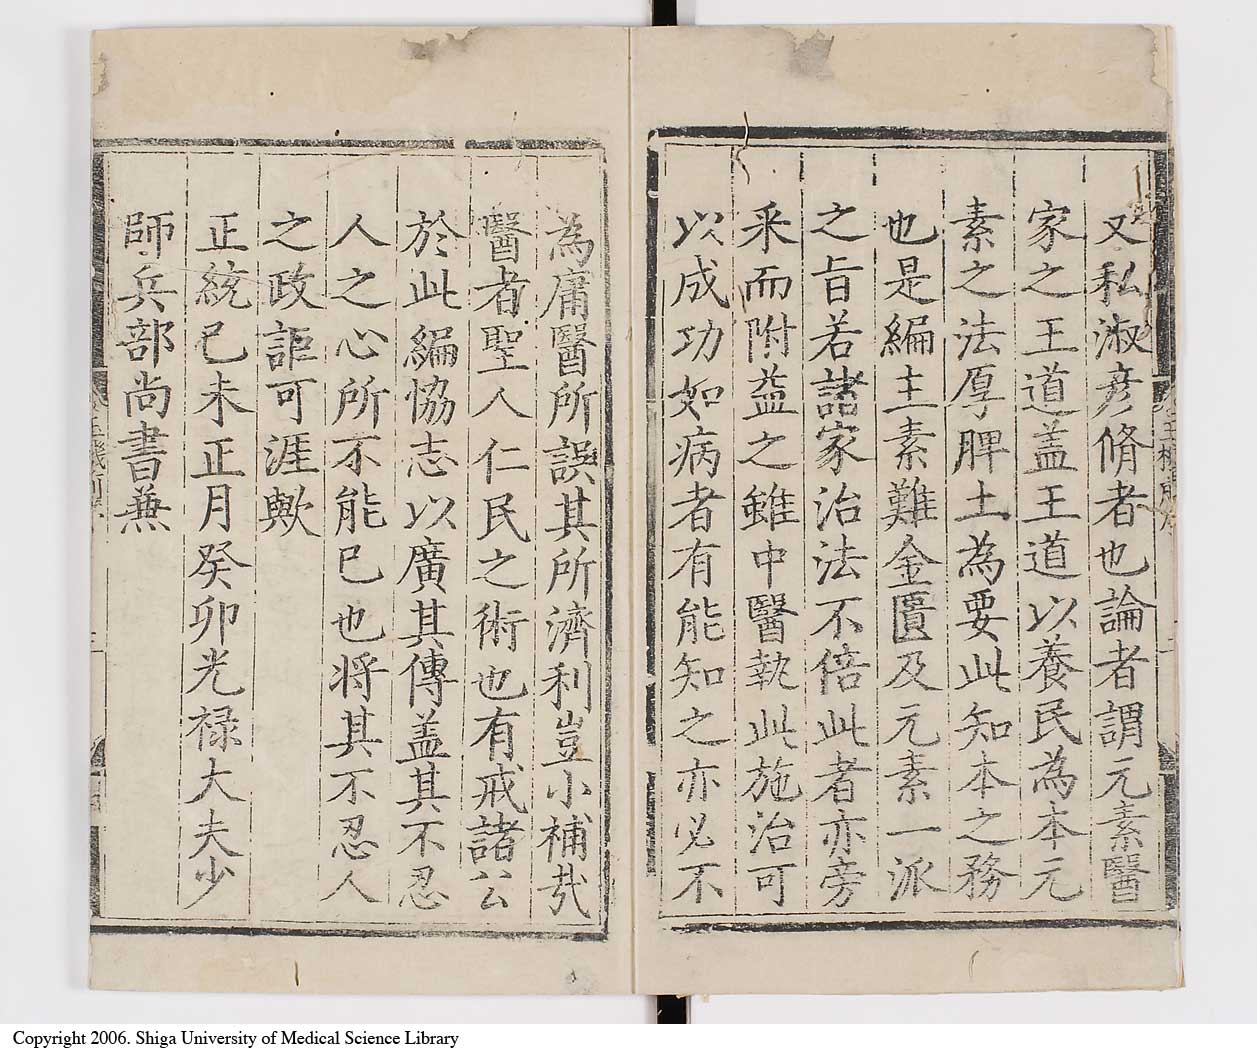 又私淑彦脩者也論者謂元素醫
家之王道盖王道以養民為本元
素之法厚脾土為要此知本之務
也是編主素難金匱及元素一派
之旨若諸家治法不倍此者亦旁
采而附益之雖中醫執此施治可
以成功如病者有能知之亦必不
為庸醫所誤其所濟利豈小補㢤
醫者聖人仁民之術也有戒諸公
於此編恊志以廣其傳盖其不忍
人之心所不能已也将其不忍人
之政詎可涯歟
正統己未正月癸卯光禄大夫少
師兵部尚書兼
Copyright 2006. Shiga University of Medical Science Library